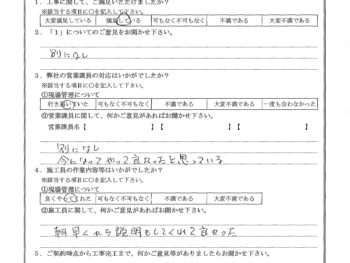 1．工事に関して、ご満足いただけましたか？
※該当する項目に○を記入して下さい。
大変満足している 満足している 可もなく不可もなく 不満である 大変不満である
2．「1」についてのご意見をお聞かせ下さい。
別になし
3．弊社の営業課員の対応はいかがでしたか？
※該当する項目に○を記入して下さい。
①現場管理について
行き届いていた 可もなく不可もなく 不満である 大変不満である 一度も会わなかった
②営業課員に関して、何かご意見があればお聞かせ下さい。
営業課員名【 】【 】【 】
別になし
今になってやって良たったと思っている
4．施工員の作業内容等はいかがでしたか？
※該当する項目に○を記入して下さい。
①現場管理について
良くやってくれた 可もなく不可もなく 不満である 大変不満である
②施工員に関して、何かご意見がありましたらお聞かせ下さい。
朝早くから説明もしてくれて良かった
5．ご契約時点から工事完工まで、何かご意見等がありましたらお聞かせ下さい。